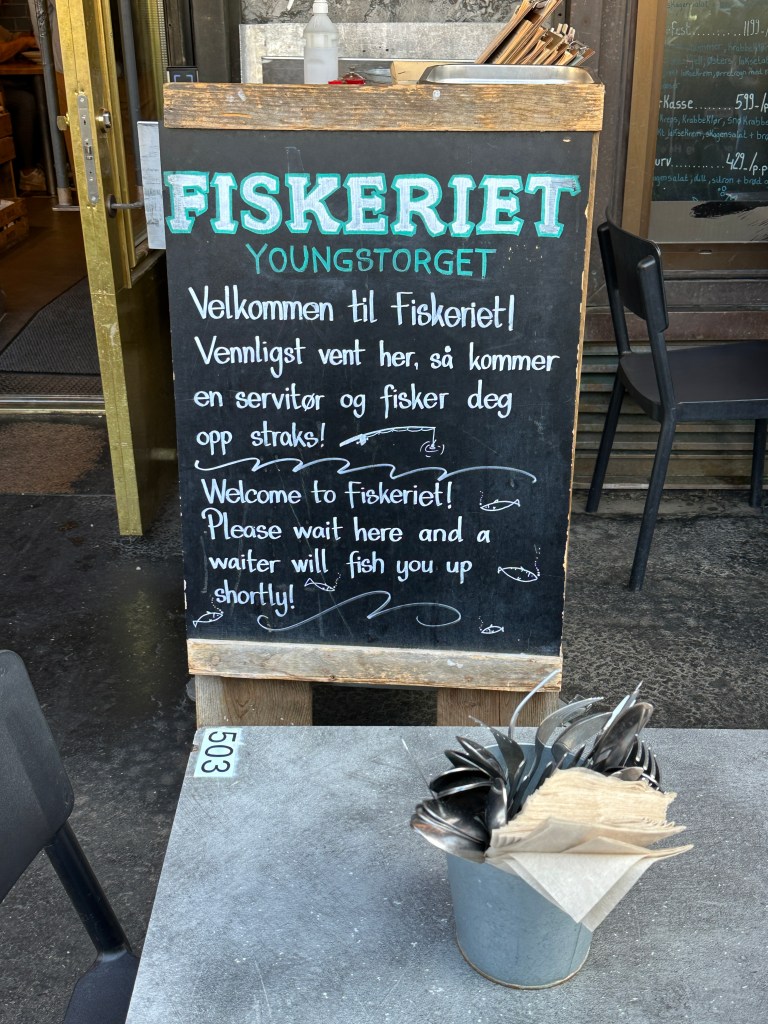 FISKERIET
YOUNGSTORGET
Velkommen til Fiskeriet!
Vennligst vent her, så kommer
en servitør og fisker deg
opp straks!
Welcome to Fiskeriet!
Please wait here and a
waiter will fish you up
shortly!
503
Kasse......... 599.-/p
429.-/p.p